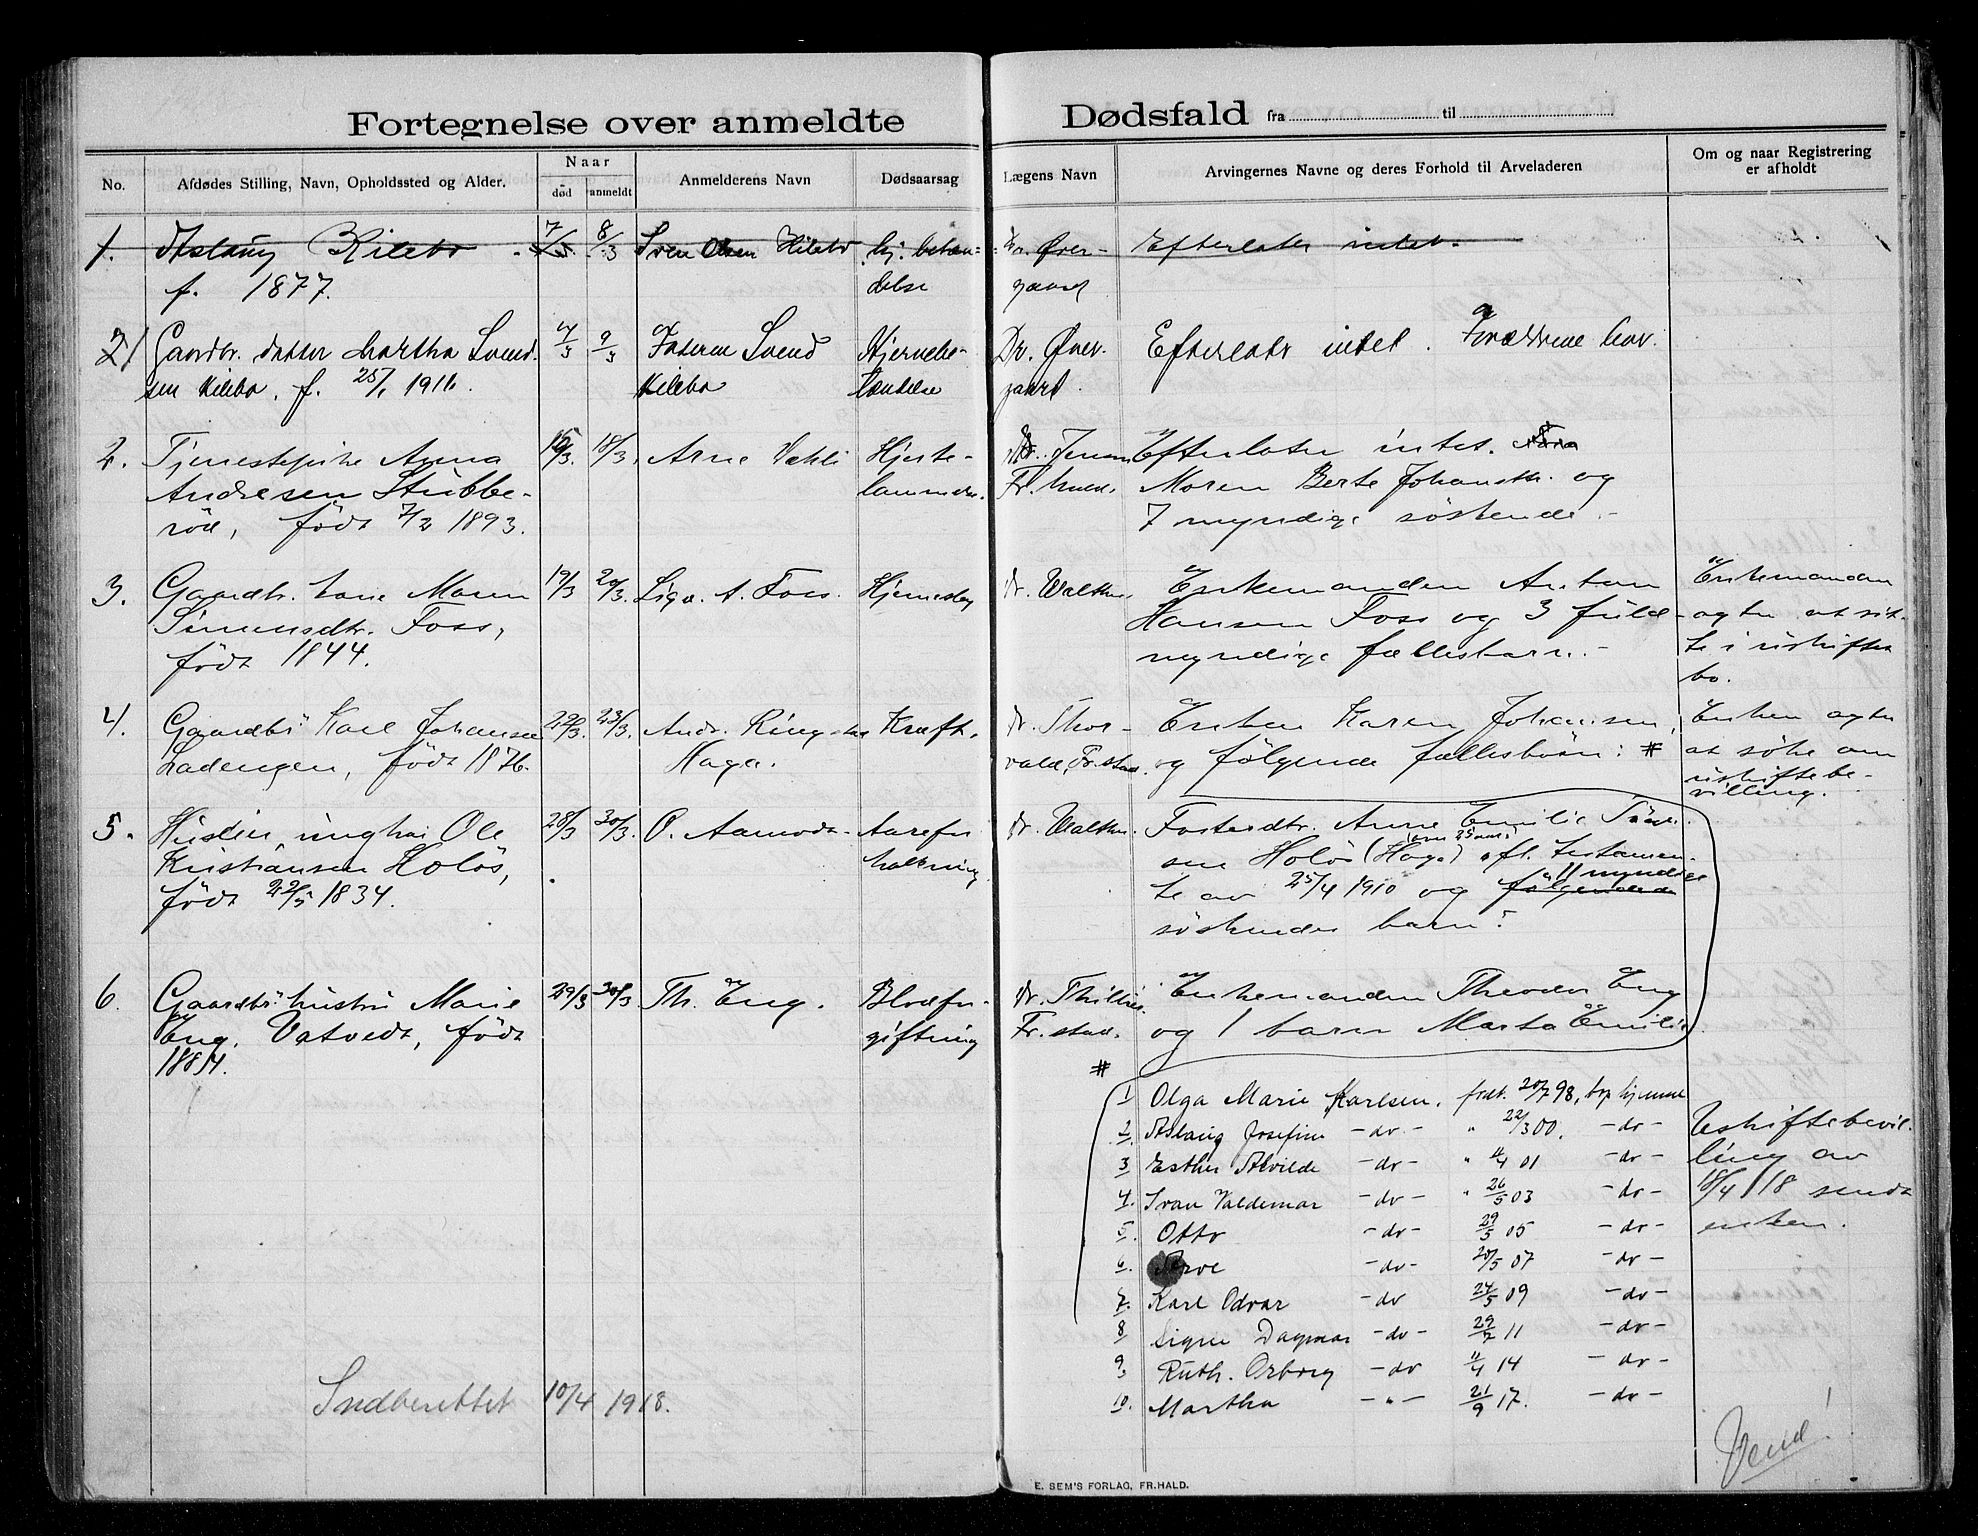 Fortegnelse over anmeldte Dødsfald fra til
No.
Afdødes Stilling, Navn, Opholdssted og Alder.
Naar
død anmeldt
Anmelderens Navn
Dødsaarsag
Lægens Navn
Arvingernes Navne og deres Forhold til Arveladeren
Om og naar Registrering
er afholdt
1. Aslaug Kilebo 7/3 8/3 Sven Olsen Kilebo Hj. betæn- Dr. Øver- Efterlater intet.
f. 1877. delse gaard
2/ Gaardbr. datter Martha Svend- 7/3 9/3 Faderen Svend Hjernebe- Dr. Øver- Efterlater intet. Forældrene lever.
sen Kilebo, f. 25/1 1911. Kilebo tændelse gaard.
2. Tjenestepike Anna 16/3. 18/3. Arne Vahli Hjerte- Dr. Jensen Efterlater intet.
Andresen Stubbe- lammelse. Fr.hald. Moren Berte Johansdtr. og
röd, födt 7/2 1893. 7 myndige söskende.-
3. Gaardbr. kone Maren 19/3 20/3. Sigv. A. Foss. Hjerneslag dr. Walther. Enkemanden Anton Enkemanden
Simensdtr. Foss, Hansen Foss og 3 fuld- agter at sit-
födt 1844. myndige fællesbarn.- te i uskiftet
bo.
4. Gaardbr Karl Johansen 22/3. 23/3. Andr. Ringstad Kræft. dr. Thor- Enken Karen Johansen, Enken agter
Ladengen, födt 1876. Haga. vald, Fr.stad. og fölgende fællesbörn: # at söke om
uskiftebe-
villing.
5. Huseier, ungkar Ole 28/3 30/3. O. Aamodt Aarefor- dr. Walther. Fosterdtr. Anne Emilie
Kristiansen Holös, kalkning sen Holös (Haga) (over 25 aar) efl. testamen-
födt 22/5 1834. te av 25/4 1910 og fölgende 11 myndige
söskendes barn:
6. Gaardbr hustru Marie 29/3 30/3 Th. Eng. Blodfor- dr. Thillier Enkemanden Theodor Eng
Eng, Vatvedt, födt giftning Fr.stad. og 1 barn Marta Emilie.
1884.
#
1 Olga Marie Karlsen, födt. 20/7 98, bop hjemme
2. Aslaug Josefine -do- " 22/3 00. -do- Uskiftebevil-
3 Esther Alvilde -do- " 11/4 01 -do- ling av
4. Ivan Valdemar -do- " 26/5 03 -do- 18/4 18 sendt
5. Otto -do- 29/5 05 -do- enken.
6. Arve -do- 20/5 07 -do-
7. Karl Odvar -do 24/5 09 -do-
8 Signe Dagmar -do- 29/2 11 -do-
9. Ruth. Orborg -do 11/4 14 -do-
10. Martha -"- 21/9 17. -do-
Indberettet 10/4 1918.
Vend!
E. SEM'S FORLAG, FR.HALD.